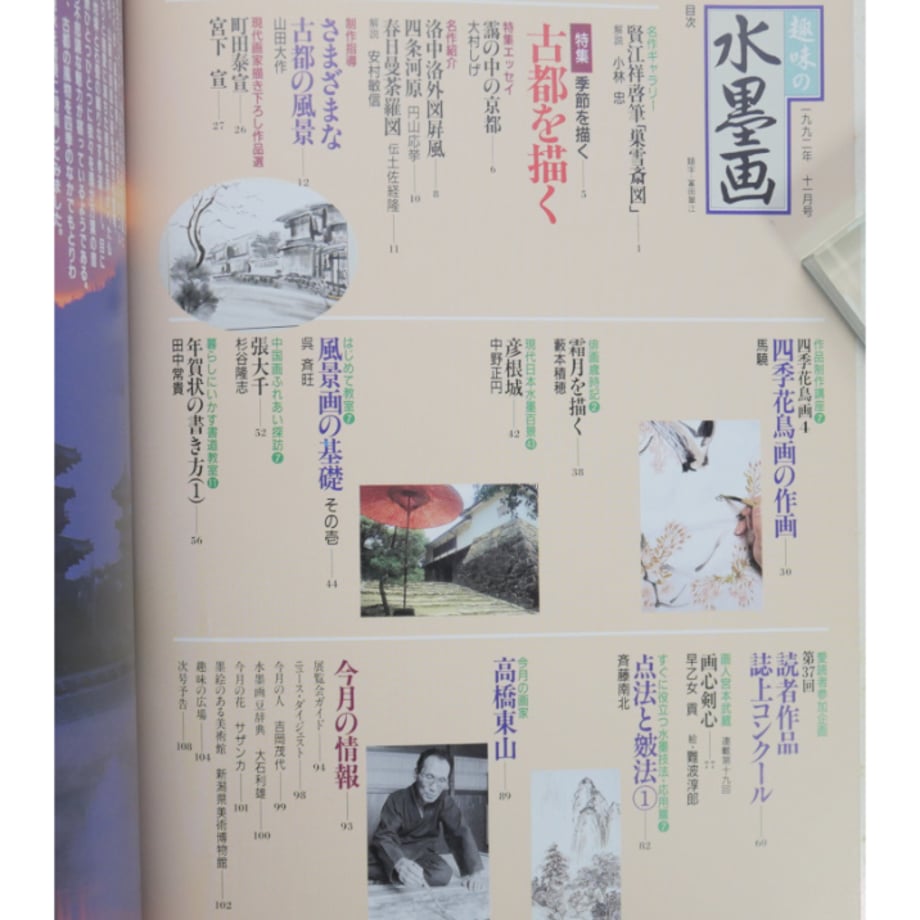 趣味の
水墨画
一九九二年 十一月号
目次
名作ギャラリー
賢江祥啓筆「巣雪斎図」 1
解説 小林 忠
特集 季節を描く 5
古都を描く
特集エッセイ
靄の中の京都 6
大村しげ
名作紹介
洛中洛外図屏風 8
四条河原 円山応挙 10
春日曼荼羅図 伝土佐経隆 11
解説 安村敏信
制作指導
さまざまな
古都の風景 12
山田大作
現代画家描き下ろし作品選
町田泰宣 26
宮下 宣 27
作品制作講座❼
四季花鳥画4
四季花鳥画の作画 30
馬驍
俳画歳時記❷
霜月を描く 38
藪本積穂
現代日本水墨百景㊸
彦根城 42
中野正円
はじめて教室❼
風景画の基礎 その壱 44
呉 斉旺
中国画ふれあい探訪❼
張大千 52
杉谷隆志
暮らしにいかす書道教室⓫
年賀状の書き方(1) 56
田中常貴
愛読者参加企画
第37回
読者作品
誌上コンクール 60
画人宮本武蔵 連載第十九回
画心剣心 77
早乙女 貢 絵・難波淳郎
すぐに役立つ水墨技法・応用篇❼
点法と皴法① 82
斉藤南北
今月の画家
高橋東山 89
今月の情報 93
展覧会ガイド 94
ニュース・ダイジェスト 98
今月の人 吉岡茂代 99
水墨画豆辞典 大石利雄 100
今月の花 サザンカ 101
墨絵のある美術館 新潟県美術博物館 102
趣味の広場 104
次号予告 108